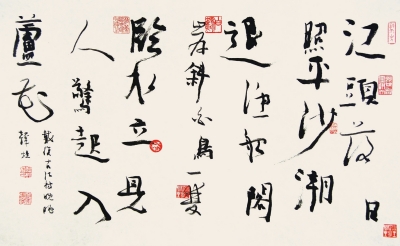 江頭落日
照平沙潮
退漁船閣
岸斜白鳥一雙
臨水立見
人驚起入
蘆花
戴復古江村晚眺